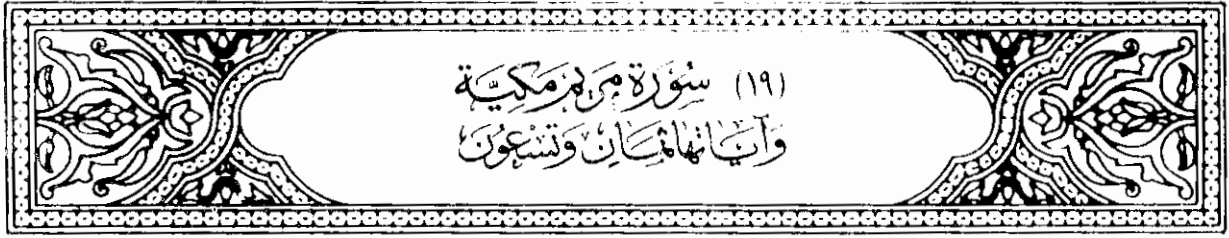 (١٩) سُورَة مَريَم مَكيَّة
وَآيَاتهَا ثَمَانِ وَتسْعُونَ